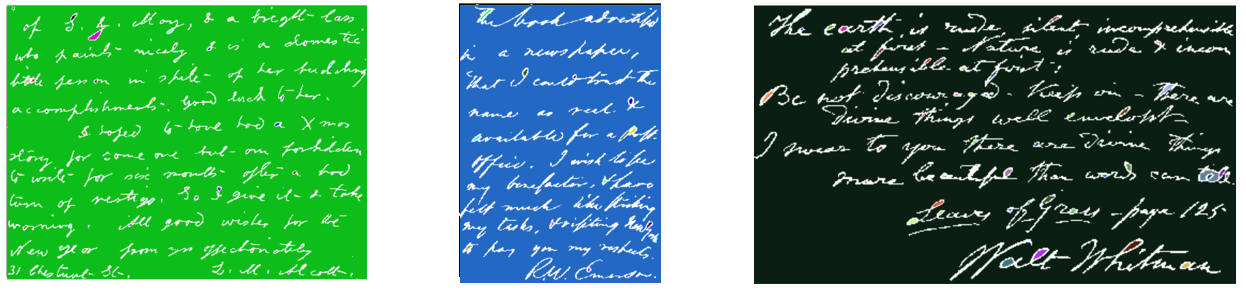 of S. J. May, & a bright lass
who paints nicely & is a domestic
little person in spite of her budding
accomplishments. Good luck to her.
I hoped to have had a Xmas
story for some one but am forbidden
to write for six months after a bad
turn of vertigo. So I give it & take
warning. All good wishes for the
New Year from yrs affectionately
31 Chestnut St. L. M. Alcott.
the book advertised
in a newspaper,
that I could trust the
name as real &
available for a post
office. I wish to see
my benefactor, & have
felt much like striking
my tasks, & visiting New York
to pay you my respects.
R.W. Emerson.
The earth is rude, silent, incomprehensible
at first - Nature is rude & incom
prehensible at first;
Be not discouraged - Keep on - there are
divine things well envelopt
I swear to you there are divine things
more beautiful than words can tell.
Leaves of Grass - page 125
Walt Whitman